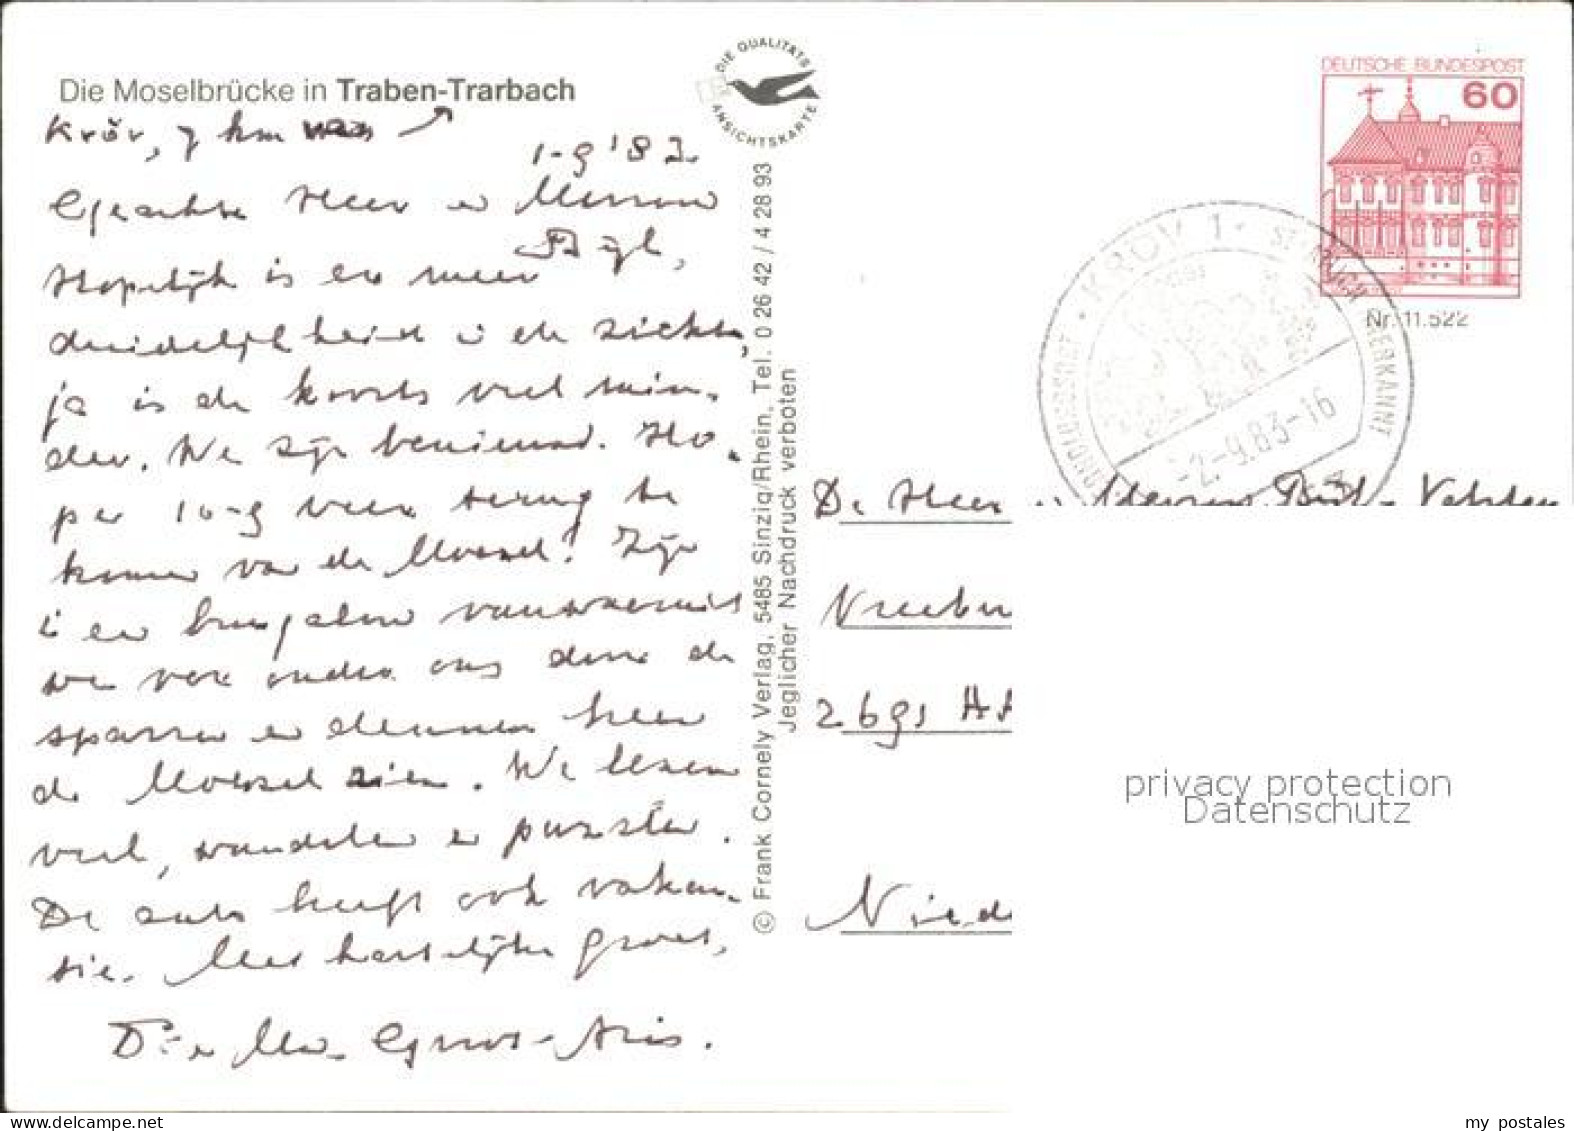 Die Moselbrücke in Traben-Trarbach
Kröv, 7 km
1-9 '83
Geachte Heer en Mevrouw
Hopelijk is er meer
duidelijkheid in de ziekte,
ja is de koorts wat min-
der. We zijn benieuwd. Ho-
per 10-9 weer terug te
komen van de Moesel! Zijn
in een bungalow vanwaaruit
we voor onder ons door de
sparren en dennen heen
de Moezel zien. We lezen
veel, wandelen en puzzelen.
De auto heeft ook vakan-
tie. Met hartelijke groet,
DIE QUALITÄTS
ANSICHTSKARTE
© Frank Cornely Verlag, 5485 Sinzig/Rhein, Tel. 0 26 42 / 4 28 93
Jeglicher Nachdruck verboten
DEUTSCHE BUNDESPOST
60
Nr. 11.522
KRÖV 1
STAATLICH ANERKANNT
-2.-9.83-16
De Heer en Mevrouw
2691
privacy protection
Datenschutz
my postales
www.delcampe.net